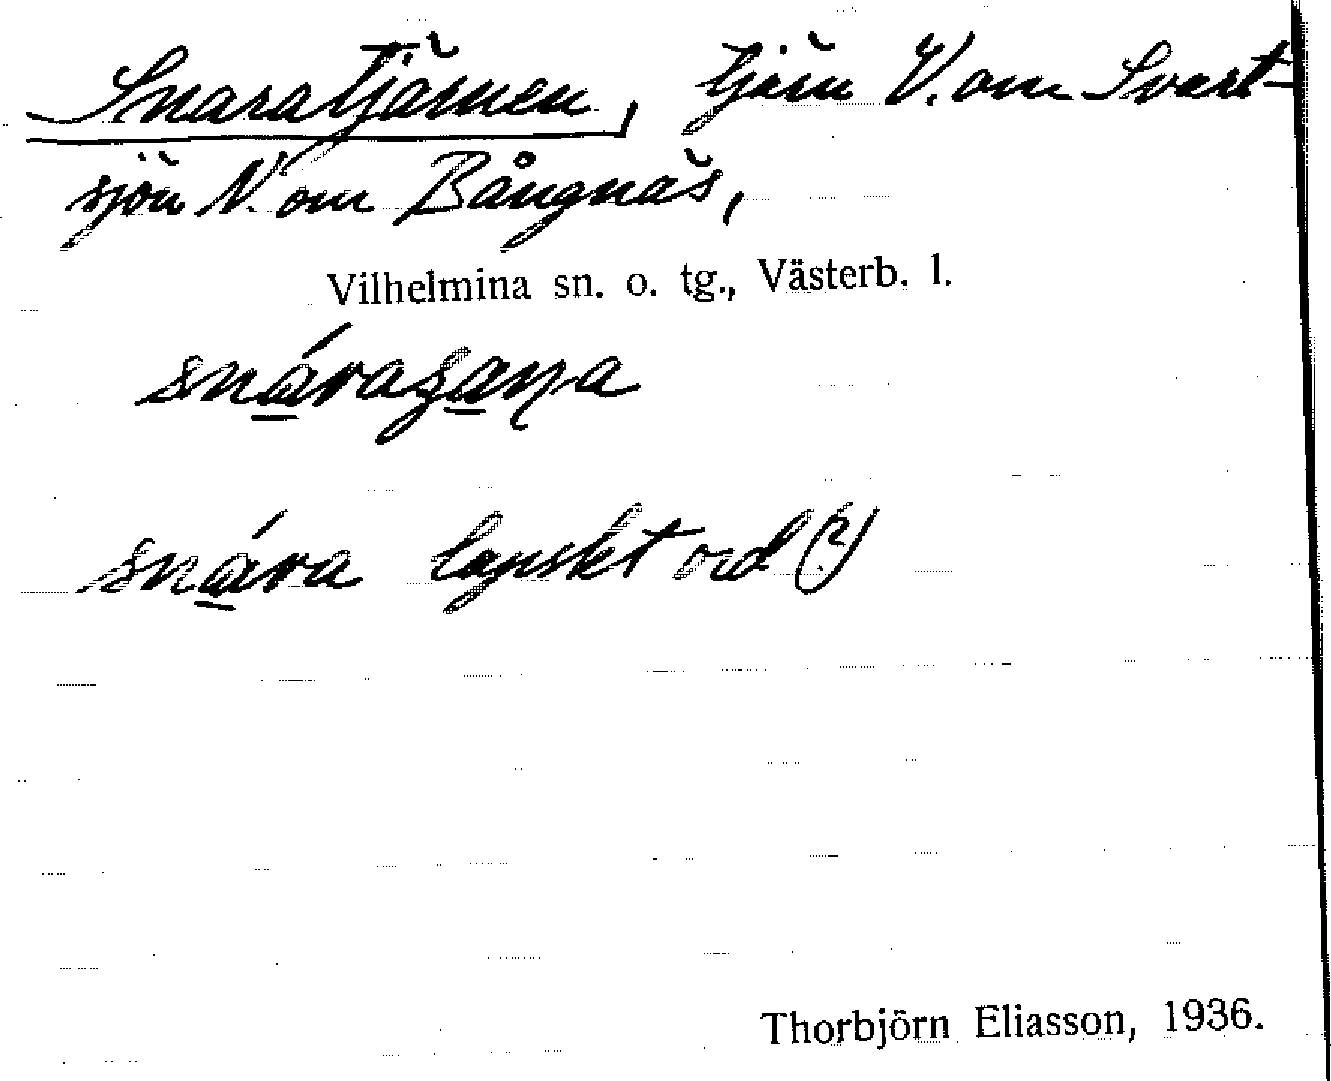 Snaratjärnen, tjärn V. om Svart-
sjön N. om Bångnäs,
Vilhelmina sn. o. tg., Västerb. l.
snára
snára lapskt ord (?)
Thorbjörn Eliasson, 1936.